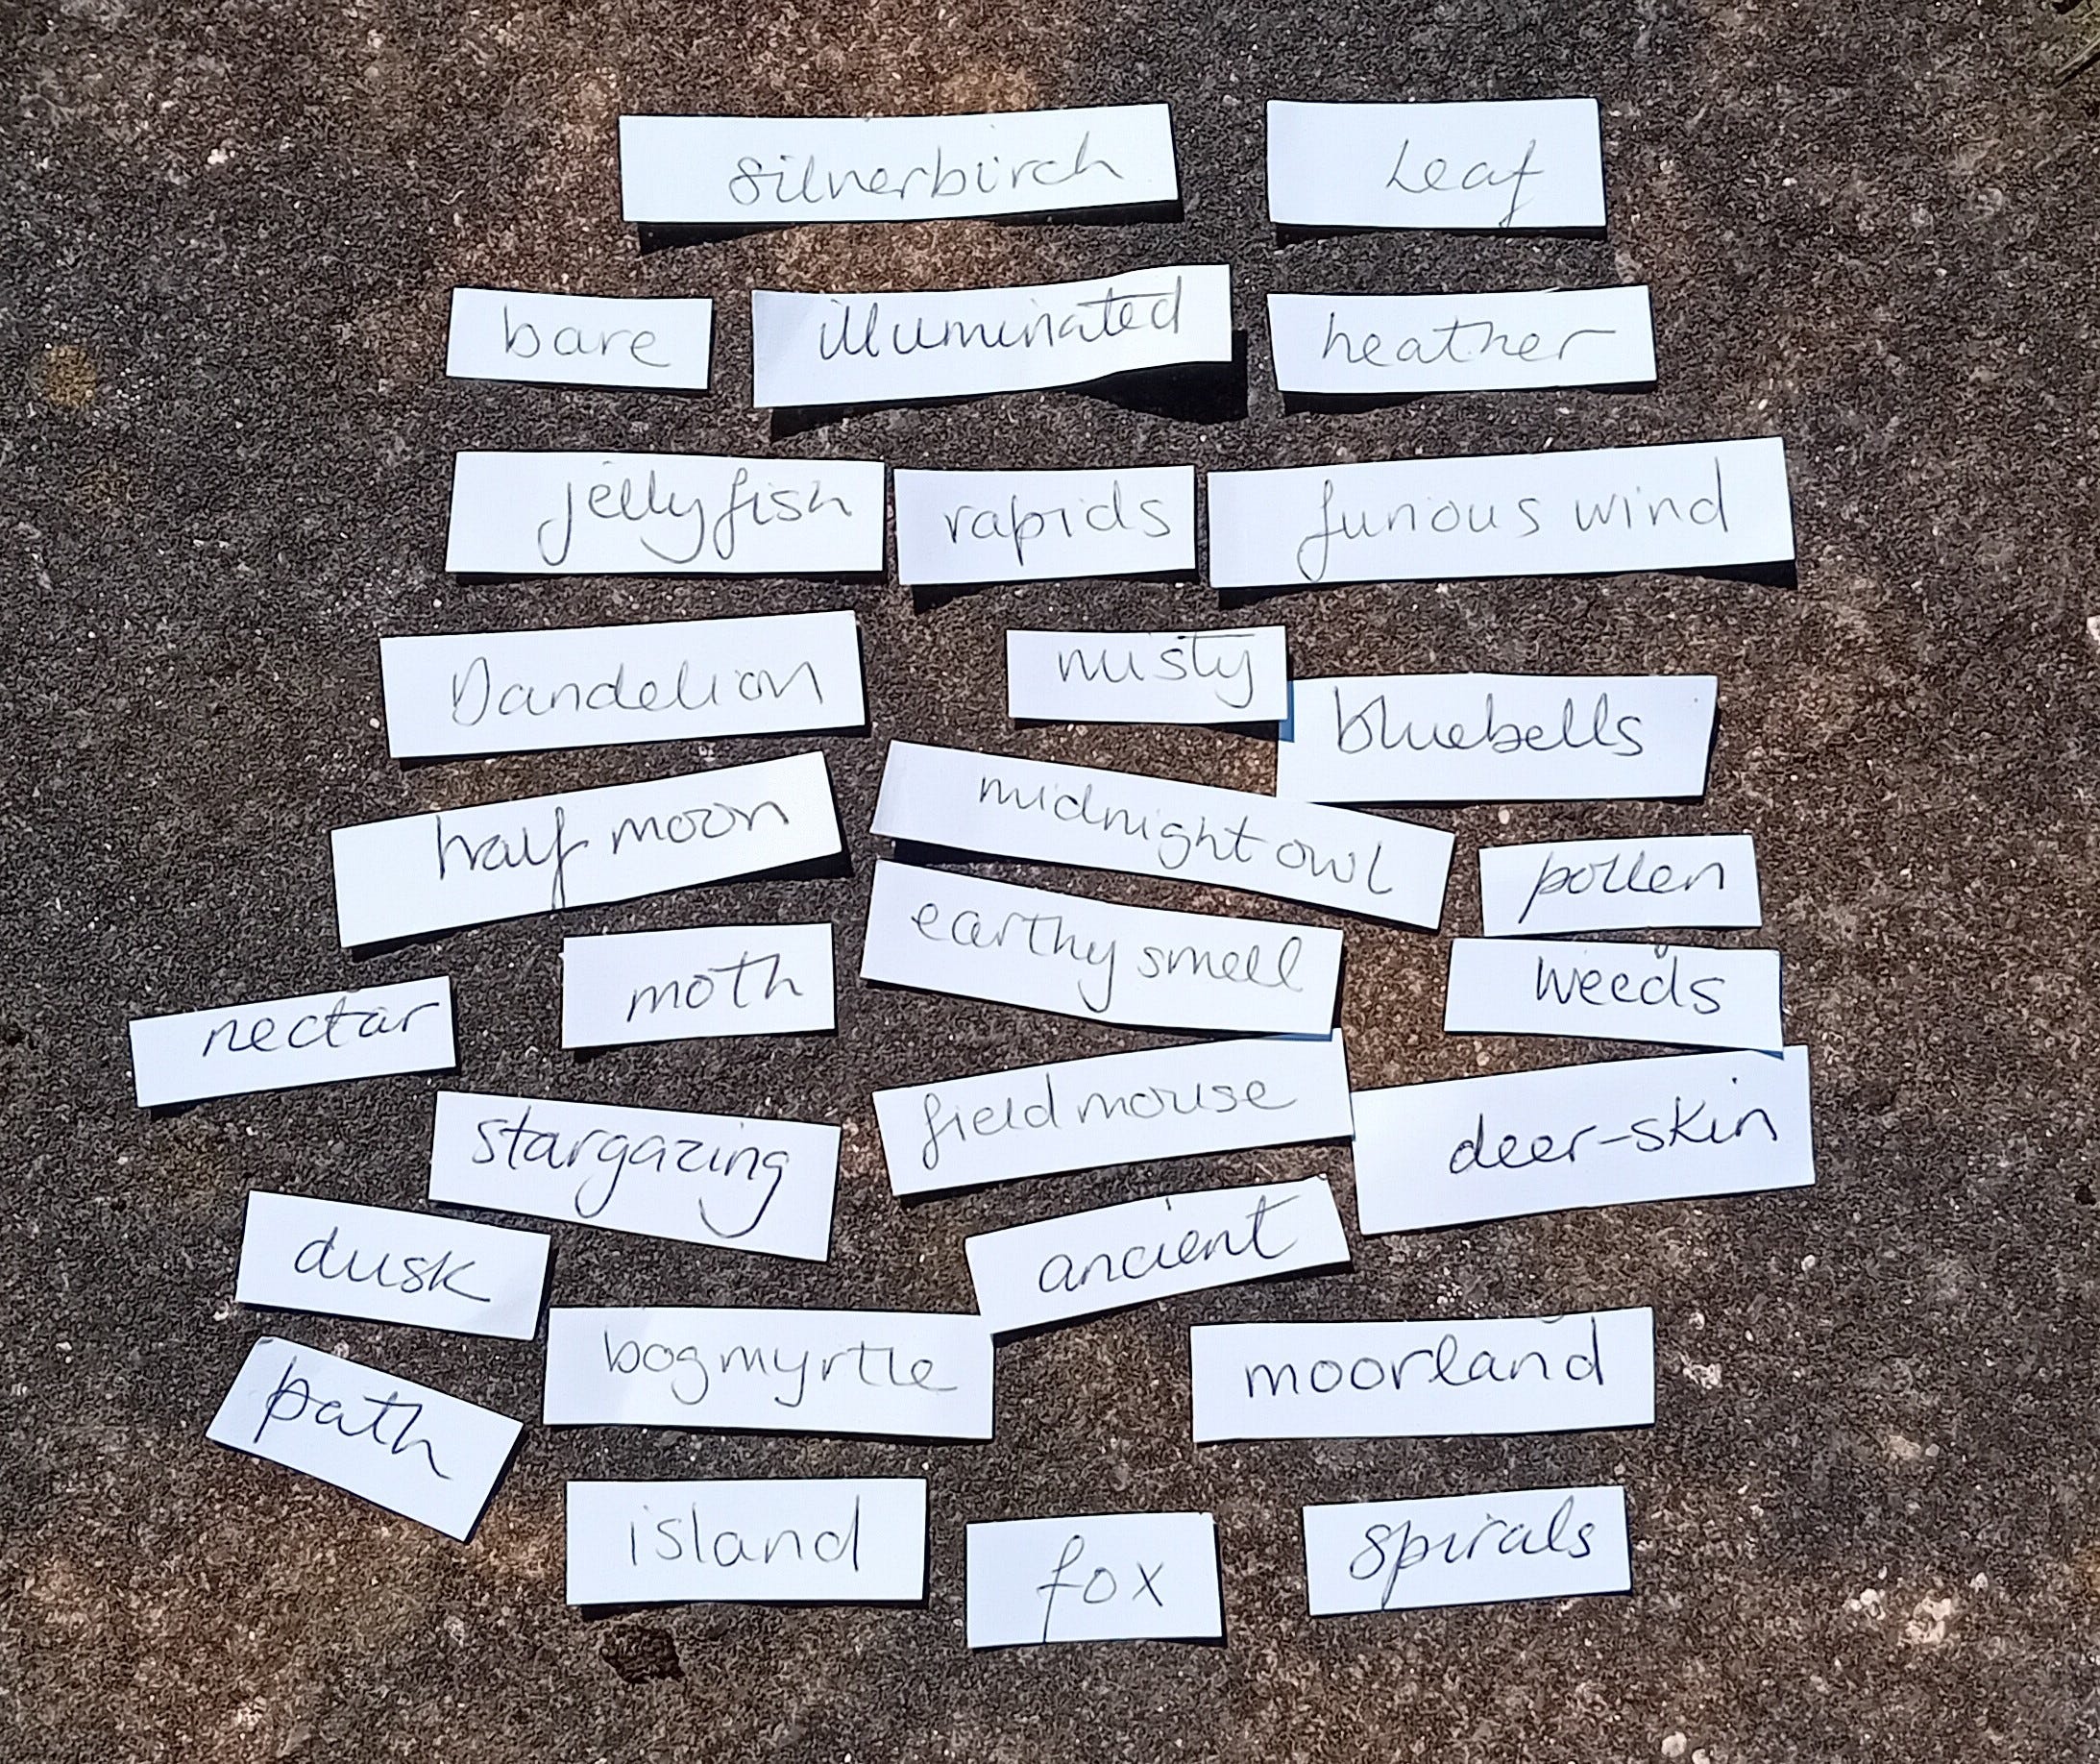 silverbirch
Leaf
bare
illuminated
heather
jellyfish
rapids
furious wind
Dandelion
misty
bluebells
half moon
midnight owl
pollen
earthy smell
moth
weeds
nectar
field mouse
deer-skin
stargazing
dusk
ancient
bogmyrtle
moorland
path
island
fox
spirals